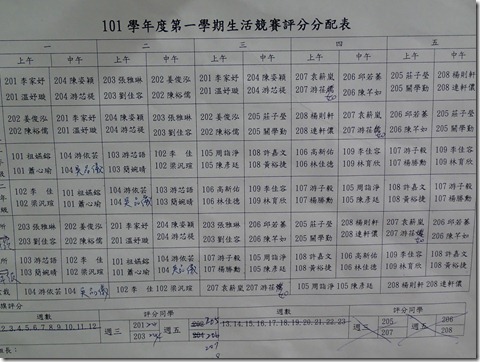 101 學年度第一學期生活競賽評分分配表
一 二 三 四 五
上午 中午 上午 中午 上午 中午 上午 中午 上午 中午
201 李家妤 204 陳姿穎 203 張雅琳 202 姜俊泓 201 李家妤 204 陳姿穎 207 袁薪嵐 206 邱若蓁 205 莊子瑩 208 楊則軒
201 溫妤璇 204 游芯禔 203 劉佳容 202 陳裕儒 201 溫妤璇 204 游芯禔 207 游荏 206 陳芊如 205 關學勤 208 連軒儂
202 姜俊泓 201 李家妤 204 陳姿穎 203 張雅琳 202 姜俊泓 205 莊子瑩 208 楊則軒 207 袁薪嵐 206 邱若蓁 205 莊子瑩
202 陳裕儒 201 溫妤璇 204 游芯禔 203 劉佳容 202 陳裕儒 205 關學勤 208 連軒儂 207 游荏 206 陳芊如 205 關學勤
101 祖嫣鎔 104 游依芸 103 游芯語 102 李 佳 105 周詣淨 108 許嘉文 106 高新佑 109 李佳容 107 游子毅
101 蕭心瑜 104 吳品儀 103 簡婉晴 102 梁汎瑄 105 陳彥廷 108 黃裕捷 106 林佳德 109 林育欣 107 楊勝勳
102 李 佳 101 祖嫣鎔 104 游依芸 103 游芯語 106 高新佑 109 李佳容 107 游子毅 105 周詣淨 108 許嘉文 107 游子毅
102 梁汎瑄 101 蕭心瑜 104 吳品儀 103 簡婉晴 106 林佳德 109 林育欣 107 楊勝勳 105 陳彥廷 108 黃裕捷 107 楊勝勳
203 張雅琳 202 姜俊泓 201 李家妤 204 陳姿穎 203 張雅琳 206 邱若蓁 205 莊子瑩 208 楊則軒 207 袁薪嵐 206 邱若蓁
203 劉佳容 202 陳裕儒 201 溫妤璇 204 游芯禔 203 劉佳容 206 陳芊如 205 關學勤 208 連軒儂 207 游荏 206 陳芊如
103 游芯語 102 李 佳 101 祖嫣鎔 104 游依芸 107 游子毅 105 周詣淨 108 許嘉文 106 高新佑 109 李佳容 108 許嘉文
103 簡婉晴 102 梁汎瑄 101 蕭心瑜 104 吳品儀 107 楊勝勳 105 陳彥廷 108 黃裕捷 106 林佳德 109 林育欣 108 黃裕捷
104 游依芸 104 吳品儀 102 李 佳 102 梁汎瑄 207 袁薪嵐 207 游荏 105 周詣淨 105 陳彥廷 208 楊則軒 208 連軒儂
評分
週數 評分同學 週數 評分同學
2, 3, 4, 5, 6, 7, 8, 9, 10, 11, 12 週三 201 203 週五 13, 14, 15, 16, 17, 18, 19, 20, 21, 22, 23 週三 205 207 週五 206 208
長：